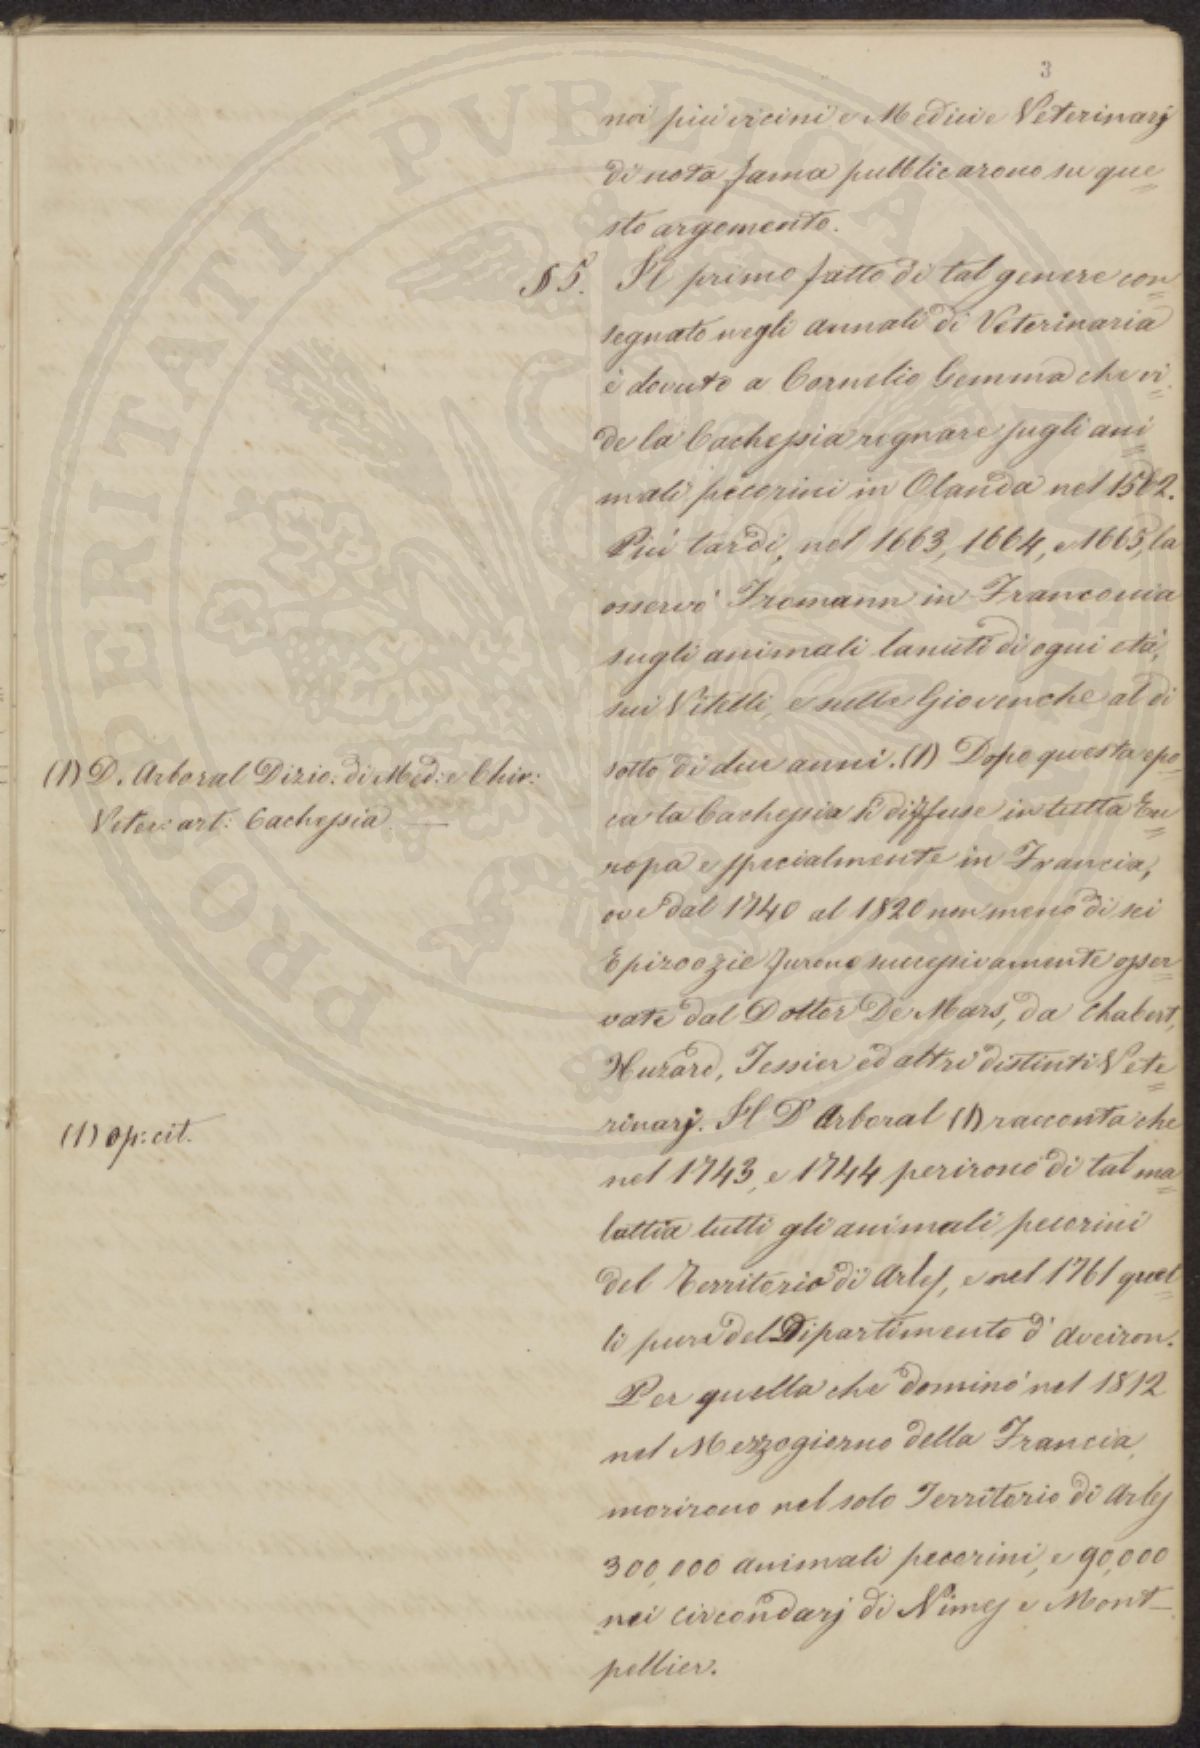 3
noi più vicini e Medici e Veterinarj
di nota fama pubblicarono su que=
sto argomento.
§ 5. Il primo fatto di tal genere con=
segnato negli annali di Veterinaria
è dovuto a Cornelio Gemma che vi=
de la Cachessia regnare sugli ani=
mali pecorini in Olanda nel 1562.
Più tardi, nel 1663, 1664, e 1665, la
osservò Fromann in Franconia
sugli animali lanuti di ogni età,
sui Vitelli, e sulle Giovenche al di
sotto di due anni. (1) Dopo questa epo=
(1) D. Arboral Dizio: di Med: e Chir:
Veter: art: Cachessia. —
ca la Cachessia si diffuse in tutta Eu=
ropa e specialmente in Francia,
ove dal 1740 al 1820 non meno di sei
Epizoozie furono successivamente osser=
vate dal Dottor De Mars, da Chabert,
Huzard, Tessier ed altri distinti Vete=
rinarj. Il D'Arboral (1) racconta che
(1) op: cit.
nel 1743, e 1744 perirono di tal ma=
lattia tutti gli animali pecorini
del Territorio di Arles, e nel 1761 quel=
li pure del Dipartimento d'Aveiron.
Per quella che dominò nel 1812
nel Mezzogiorno della Francia,
morirono nel solo Territorio di Arles
300,000 animali pecorini, e 90,000
nei circondarj di Nimes e Mont-
pellier.
PROSPERITATI PVBLICAE